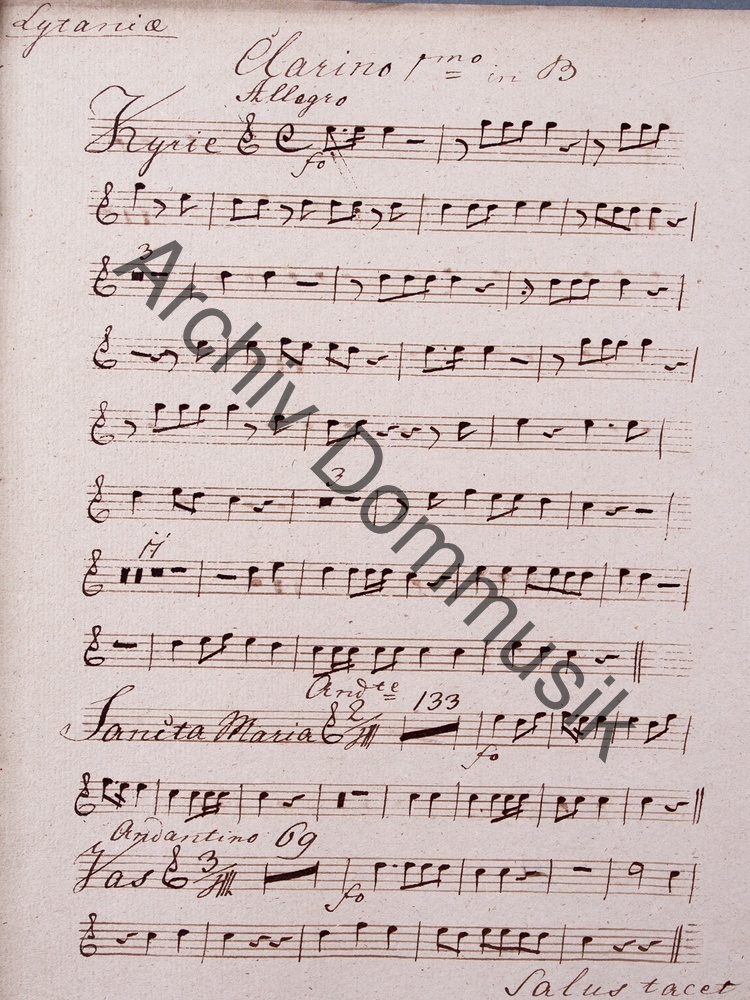 Lytaniæ
Clarino 1mo in B
Allegro
Kyrie
fo
3
3
17
Andte
Sancta Maria 2 133
fo
Andantino 69
Vas 3
fo
Salus tacet
Archiv Dommusik